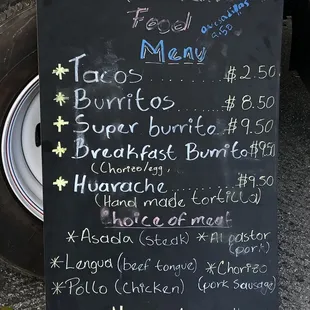 Food
Menu
quesadillas
9.50
* Tacos ........... $2.50
* Burritos ........... $8.50
* Super burrito .. $9.50
* Breakfast Burrito $9.50
(Chorizo/egg,
* Huarache ........... $9.50
(Hand made tortilla)
Choice of meat
*Asada (steak) *Al pastor
(pork)
*Lengua (beef tongue) *Chorizo
*Pollo (chicken) (pork sausage)